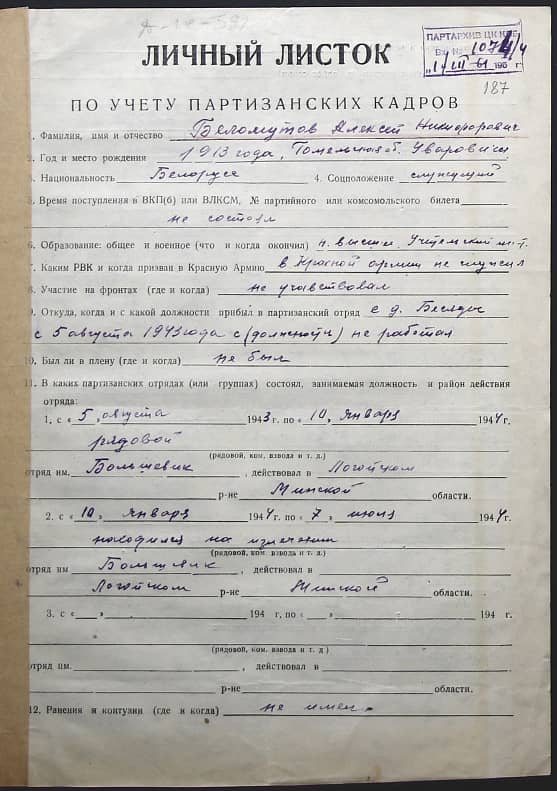 ПАРТАРХИВ ЦК КПБ
Вх. № 1074/4
"1" III 61 196 г.
187
ЛИЧНЫЙ ЛИСТОК
ПО УЧЕТУ ПАРТИЗАНСКИХ КАДРОВ
1. Фамилия, имя и отчество Беломутов Алексей Никифорович
2. Год и место рождения 1913 года, Гомельская об. Уваровичи
3. Национальность Белорус 4. Соцположение служущий
5. Время поступления в ВКП(б) или ВЛКСМ, № партийного или комсомольского билета
не состоял
6. Образование: общее и военное (что и когда окончил) н. высш. Учтемский ин-т.
7. Каким РВК и когда призван в Красную Армию в Красной армии не служил
8. Участие на фронтах (где и когда) не учавствовал
9. Откуда, когда и с какой должности прибыл в партизанский отряд с д. Беседы
с 5 августа 1943 года с (должности) не работал
10. Был ли в плену (где и когда) не был
11. В каких партизанских отрядах (или группах) состоял, занимаемая должность и район действия
отряда:
1. с « 5 августа 1943 г. по « 10 » января 1944 г.
рядовой
(рядовой, ком. взвода и т. д.)
отряд им. Большевик, действовал в Логойском
р-не Минской области.
2. с « 10 » января 1944 г. по « 7 » июля 1944 г.
находился на излечении
(рядовой, ком. взвода и т. д.)
отряд им Большевик, действовал в
Логойском р-не Минской области.
3. с « » 194 г. по « » 194 г.
(рядовой, ком. взвода и т. д.)
отряд им. , действовал в
р-не области.
12. Ранения и контузии (где и когда) не имел.